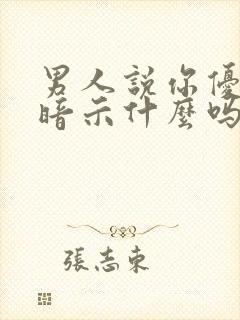 男人説你優
暗示什麼嗎
張志東